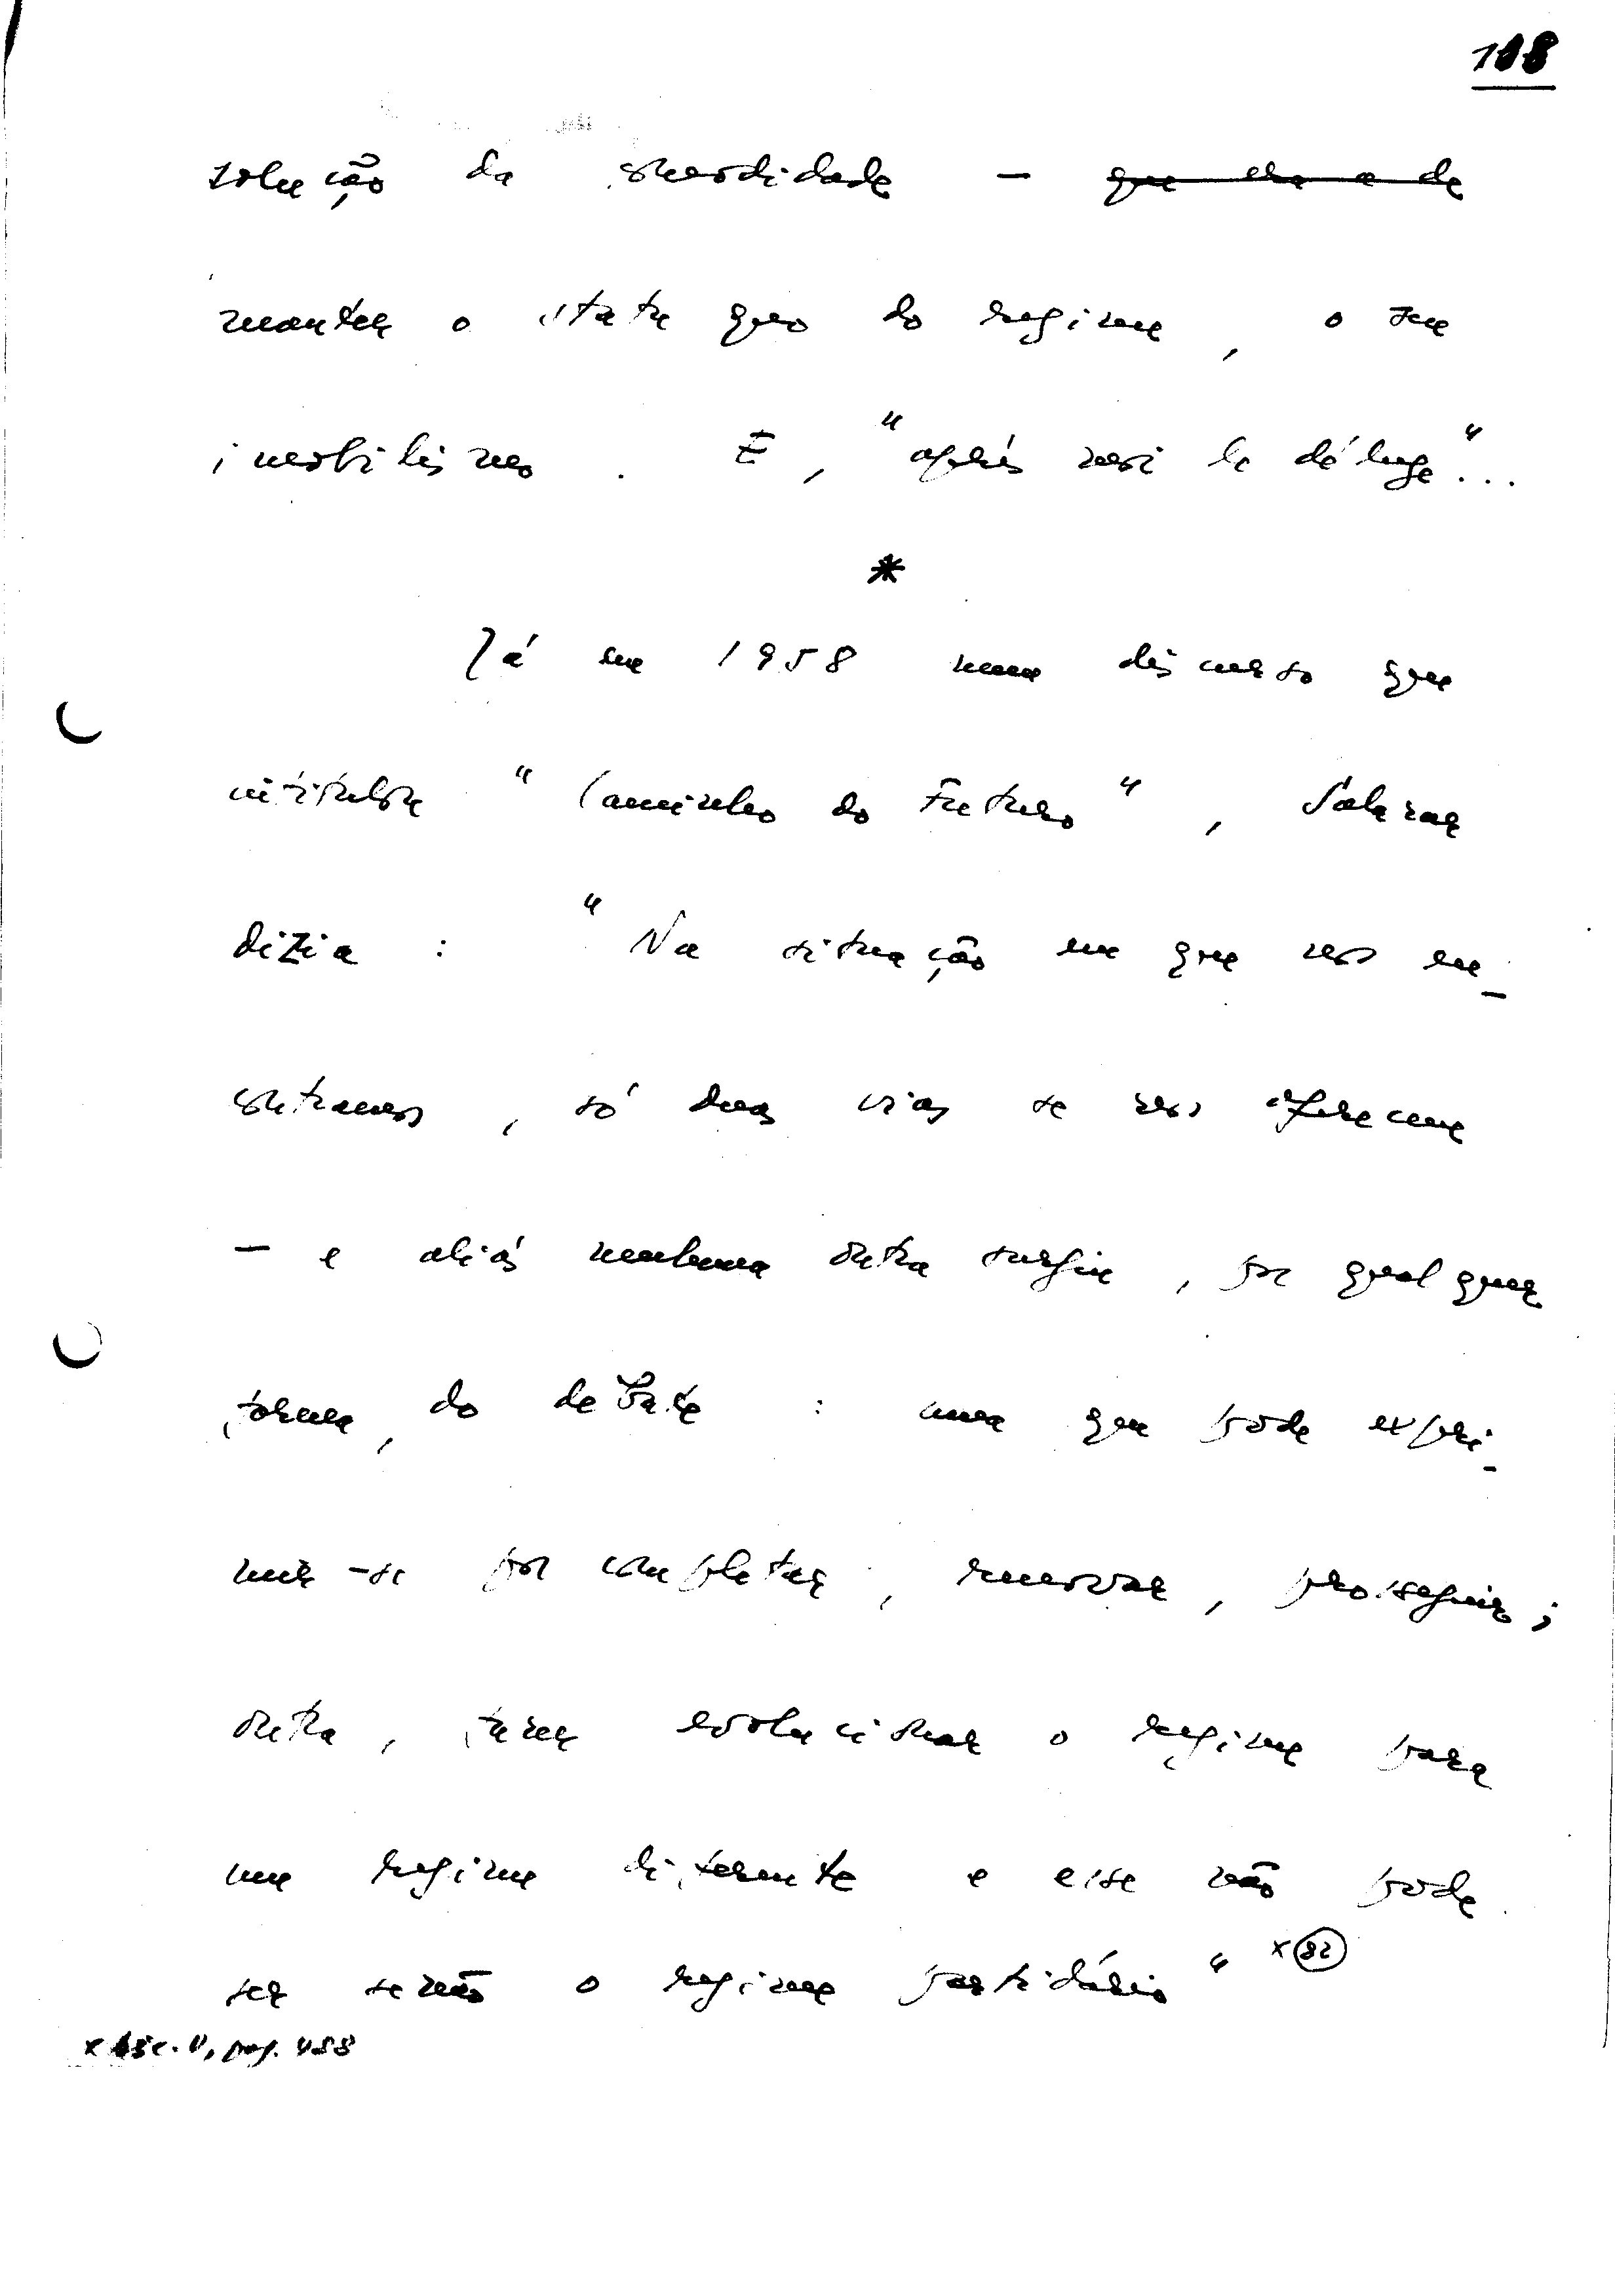 118
solução da comodidade – que era a de
manter o statu quo do regime, o seu
imobilismo. E, "après moi le déluge"...
*
Já em 1958 num discurso que
intitulou "Caminho do Futuro", Salazar
dizia: "Na situação em que nos en-
contramos, só duas vias se nos oferecem
– e aliás nenhuma outra surgiu, por qualquer
forma, do debate: uma que pode expri-
mir-se por completar, renovar, prosseguir;
outra, fazer evolucionar o regime para
um regime diferente e esse não pode
ser senão o regime partidário" x (82)
x Disc. V, pag. 488